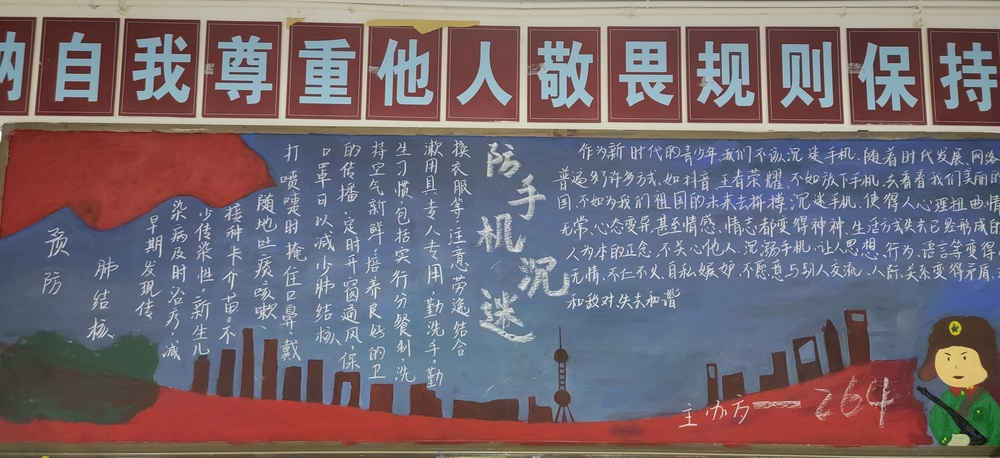 纳自我尊重他人敬畏规则保持
预防
肺结核
早期发现传
染病及时治疗,减
少传染性,新生儿
接种卡介苗.不
随地吐痰.咳嗽、
打喷嚏时掩住口鼻.戴
口罩日以减少肺结核
的传播.定时开窗通风.保
持空气新鲜.培养良好的卫
生习惯,包括实行分餐制.洗
漱用具.专人专用.勤洗手.勤
换衣服等.注意劳逸结合
防手机沉迷
作为新时代的青少年,我们不该沉迷手机.随着时代发展,网络
普遍 许多方式.如抖音.王者荣耀.不如放下手机.去看看我们美丽的
国.不如为我们祖国的未来去拼搏.沉迷手机.使得人心理扭曲情
无常.心态变异.甚至情感、情志都变得神神.生活方式失去已经形成的
人为本的正念.不关心他人.沉溺手机.让人思想、行为、语言等变得
无情.不仁不义.自私嫉妒.不愿意与别人交流.人际关系变得矛盾
和敌对.失去和谐
主办方——264